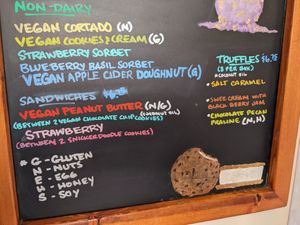 NON-DAIRY
VEGAN CORTADO (N)
VEGAN COOKIES & CREAM (G)
STRAWBERRY SORBET
BLUEBERRY BASIL SORBET
VEGAN APPLE CIDER DOUGHNUT (G)
SANDWICHES
VEGAN PEANUT BUTTER (N/G)
(COCONUT OIL)
(BETWEEN 2 VEGAN CHOCOLATE CHIP COOKIES)
STRAWBERRY
(BETWEEN 2 SNICKERDOODLE COOKIES)
* G - GLUTEN
N - NUTS
E - EGG
H - HONEY
S - SOY
TRUFFLES
(3 PER BOX)
*COCONUT OIL
• SALT CARAMEL
• SWEET CREAM WITH
BLACKBERRY JAM
• CHOCOLATE PECAN
PRALINE (N, H)